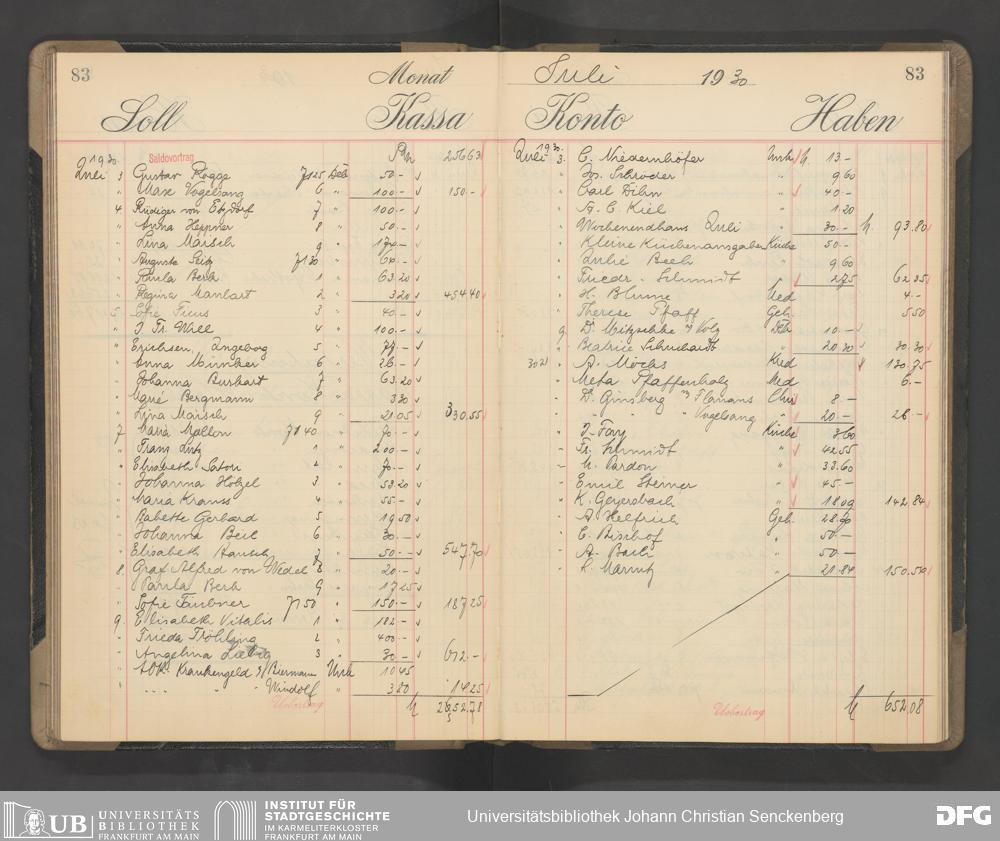 83
Monat
Soll
Kassa
Saldovortrag
Rm 256 63
1930.
Juli 3 Gustav Rogge 7125 Deb 50.-
" Max Vogelsang 6 " 100.- 150.-
4 Rüdiger von Etzdorf 7 " 100.-
" Anna Heppner 8 " 50.-
" Lina Maisch 9 "
" Auguste 7130 " 60.-
" Paula Berk 1 " 63.20
" Regina Manhart 2 " 454 40
5 Sofie 3 " 40.-
" J. Fr. Will 4 " 100.-
" Erichsen, Ingeborg 5 "
" Anna 6 " 26.-
" Johanna Burkart 7 " 63.20
" Bergmann 8 " 3 20
" Lina Maisch 9 " 21.05 330.55
7 Maria Mallon 7140 " 70.-
" Franz Lutz 1 " 200.-
" Elisabeth 2 " 70.-
" Johanna Hölzel 3 " 53.20
" Maria Krauss 4 " 55.-
" Babette Gerhard 5 " 19 50
" Johanna Beil 6 " 30.-
" Elisabeth 7 " 50.- 547.70
8. Graf Alfred von Wedel 8 " 20.-
" Paula Berk 9 " 17 25
" Sofie 7150 " 150.- 187 25
9. Elisabeth Vitalis 1 " 182.-
" Frieda Fröhling 2 " 400.-
" Angelina 3 " 30.- 612.-
" AOK. Krankengeld Biermann Unk 10 45
" " " Windolf " 3 80 14 25
Uebertrag 2652.78
Juli 1930
83
Konto
Haben
1930.
Juli 3. C. Niedernhöfer Unk 13.-
" Jos. Schröder " 9 60
" Carl Dihn " 40.-
" C. Kiel " 1.20
" Wochenendhaus Juli " 30.- 93.80
" Kleine Küchenausgaben Küche 50.-
" Julie " 9.60
" Friedr. Schmidt " 2 75 62 35
" H. Blume Ued 4.-
" Therese Pfaff Geh. 5 50
9. D. Mitzschke Volz Deb 10.-
" Beatrice Schuchardt " 20 30 30.30
302 " A. Möcks Kred 130.75
" Meta Pfaffenholz Ued 6.-
" D. Ginsberg 8.-
" " " Vogelsang " 20.- 28.-
" J. Küche
" Fr. Schmidt " 42.55
" Pardon " 33.60
" Emil Sterner " 45.-
" K. Geyersbach " 18.09 142.84
" A. Helfrich Geh. 28.90
" C. Bischof " 50.-
" A. " 50.-
" 21.84 150.54
Uebertrag 652.08
UB UNIVERSITÄTS
BIBLIOTHEK
FRANKFURT AM MAIN
INSTITUT FÜR
STADTGESCHICHTE
IM KARMELITERKLOSTER
FRANKFURT AM MAIN
Universitätsbibliothek Johann Christian Senckenberg
DFG